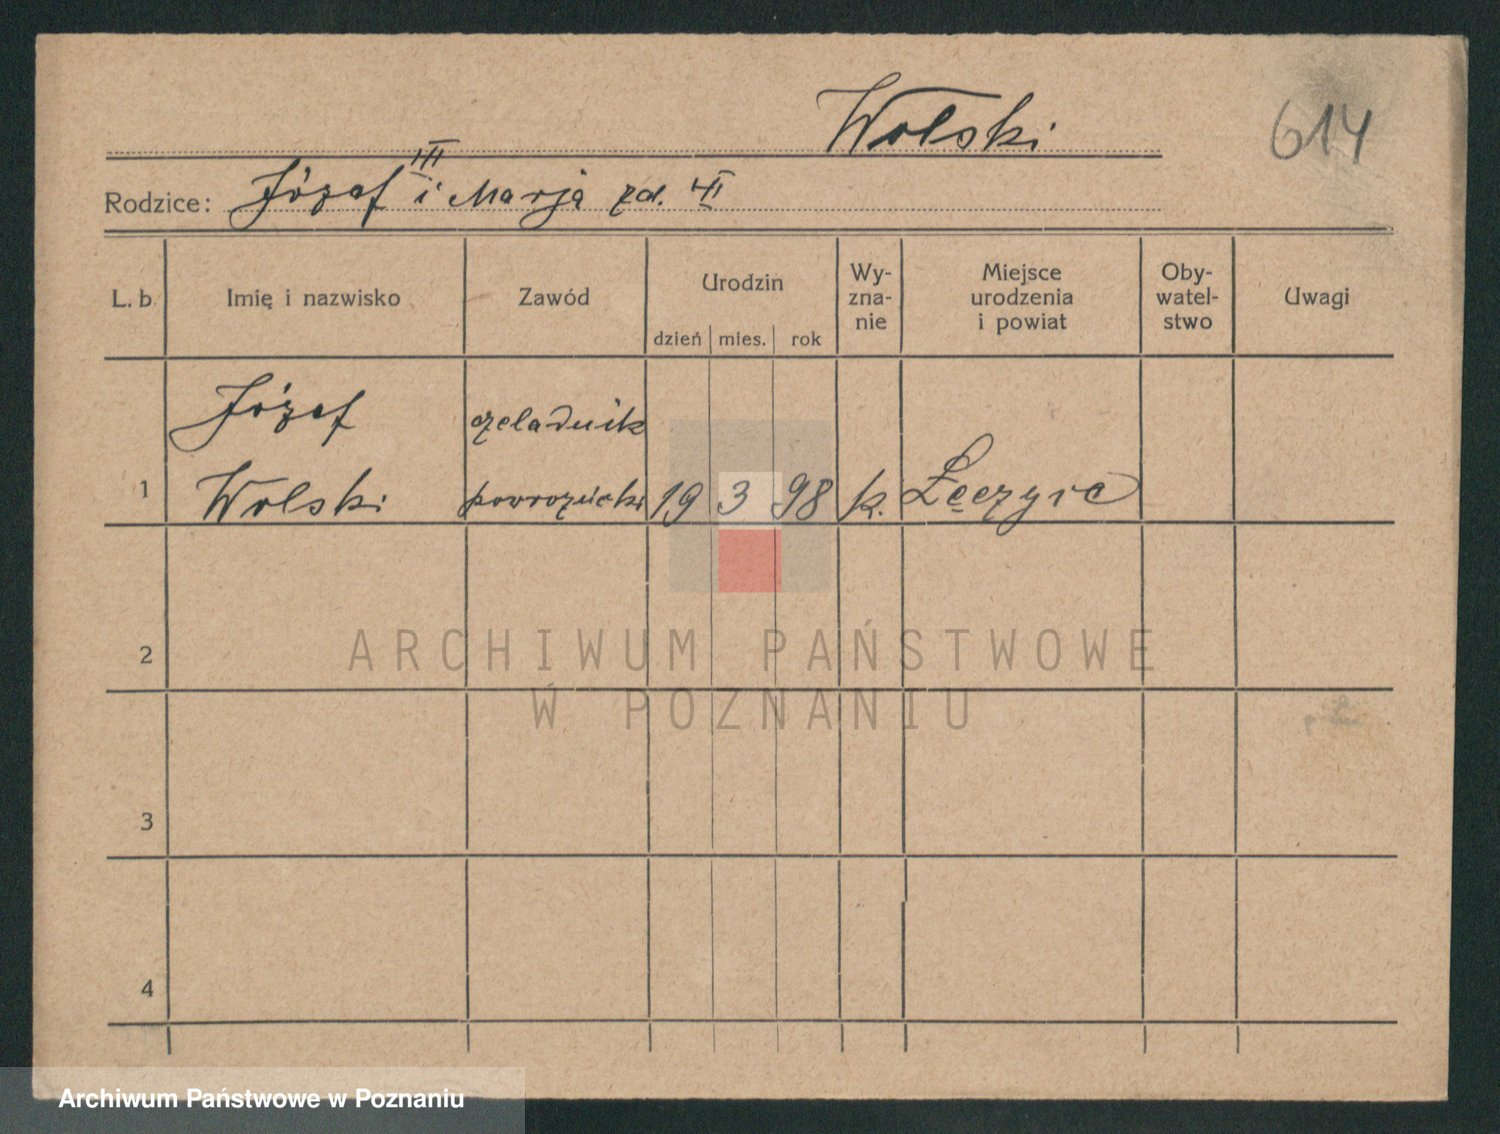 Wolski
614
Rodzice: Józef III i Marja zd.
L. b. Imię i nazwisko Zawód Urodzin Wy-zna-nie Miejsce urodzenia i powiat Oby-watel-stwo Uwagi
dzień mies. rok
Józef czeladnik
1 Wolski powroźnicki 19 3 98 k. Łęczyce
2
3
4
ARCHIWUM PAŃSTWOWE
W POZNANIU
Archiwum Państwowe w Poznaniu